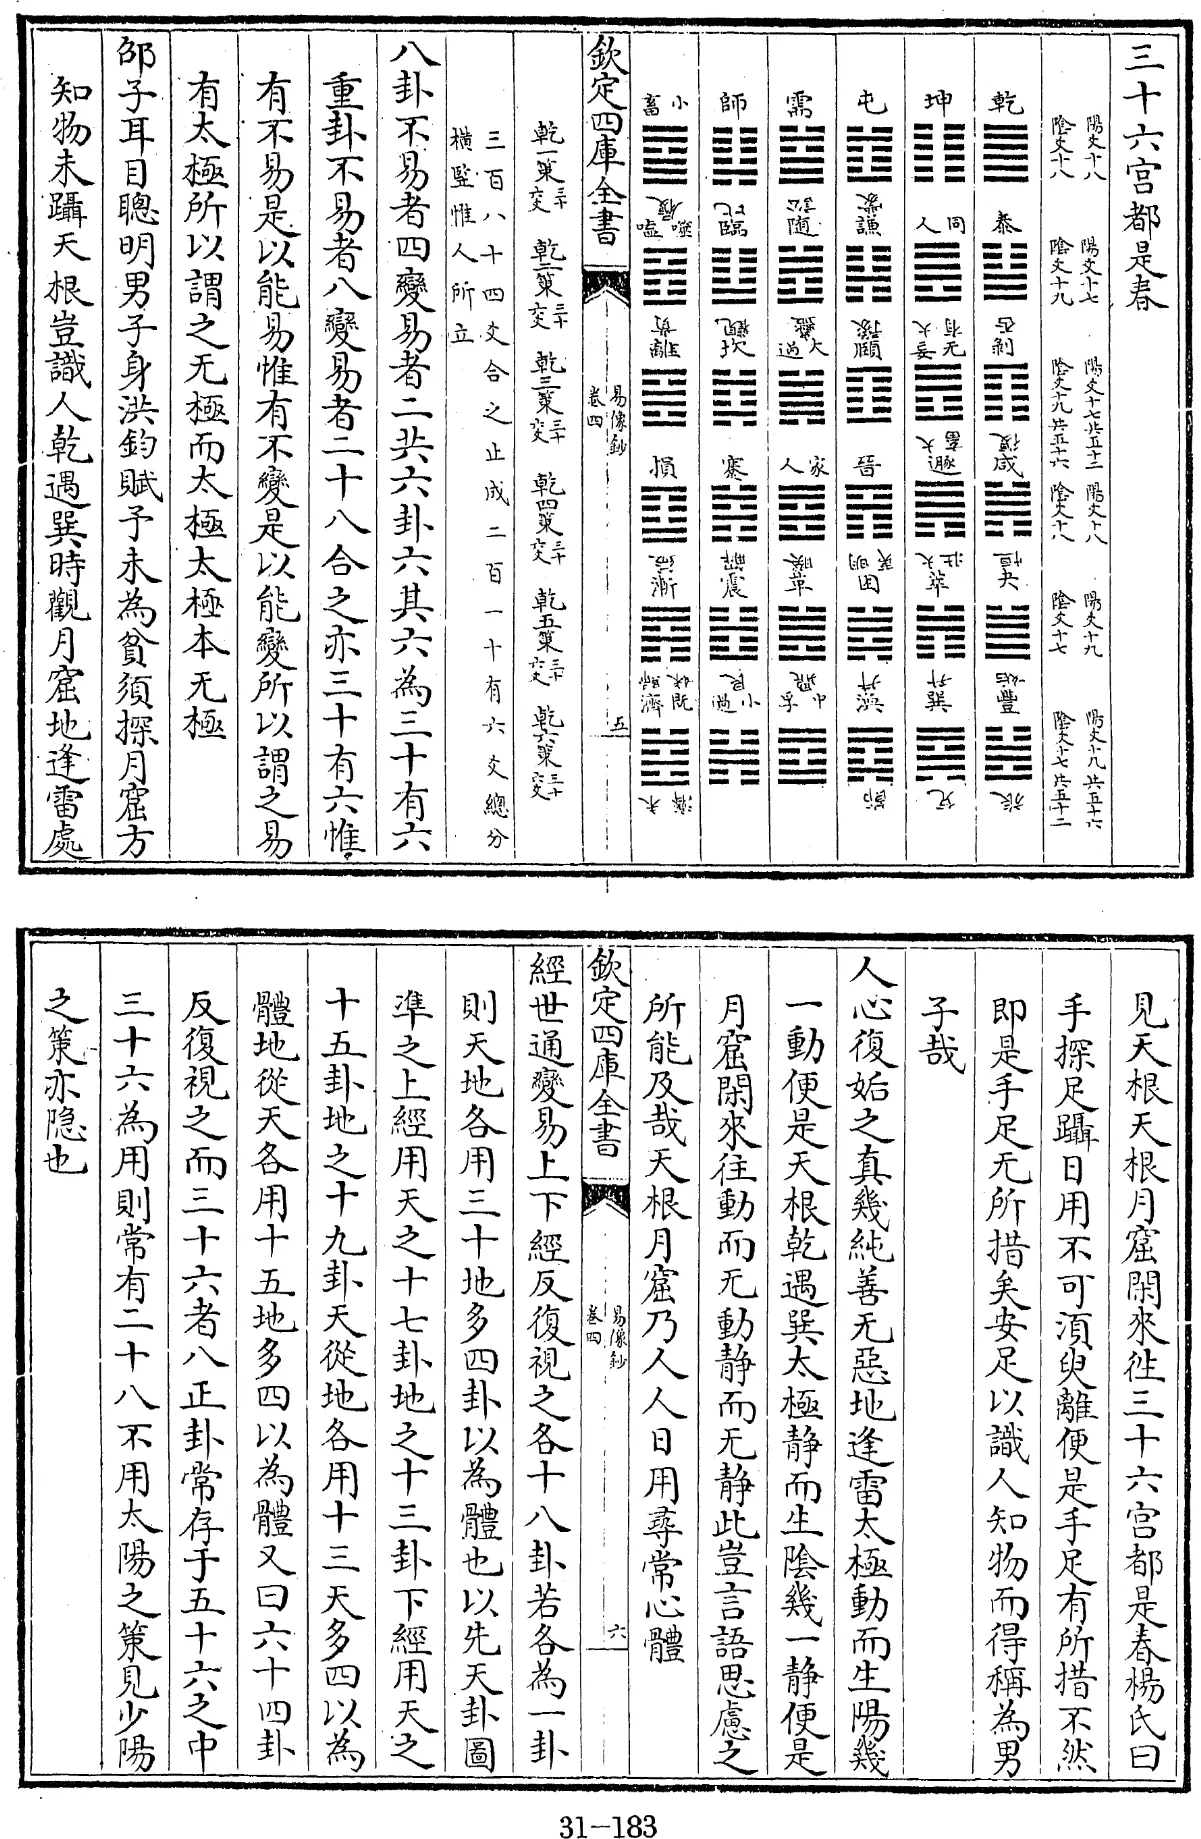 三十六宮都是春
陽爻十八 陽爻十七 陽爻十七共五十二 陽爻十八 陽爻十九 陽爻十九共五十六
陰爻十八 陰爻十九 陰爻十九共五十六 陰爻十八 陰爻十七 陰爻十七共五十二
乾 泰 否 剝 復 咸 恒 夬 姤 豐 旅
坤 同人 大有 无妄 大畜 遯 大壯 萃 升 巽 兌
屯 蒙 謙 豫 頤 晉 明夷 困 井 渙 節
需 訟 隨 蠱 大過 家人 睽 革 鼎 中孚
師 比 臨 觀 坎 蹇 解 震 艮 小過
小畜 履 噬嗑 賁 離 損 益 漸 歸妹 既濟 未濟
欽定四庫全書 易像鈔 卷四 五
乾一策三十六爻 乾二策三十六爻 乾三策三十六爻 乾四策三十六爻 乾五策三十六爻 乾六策三十六爻
三百八十四爻合之止成二百一十有六爻總分
橫豎惟人所立
八卦不易者四變易者二共六卦六其六為三十有六
重卦不易者八變易者二十八合之亦三十有六惟
有不易是以能易惟有不變是以能變所以謂之易
有太極所以謂之无極而太極太極本无極
邵子耳目聰明男子身洪鈞賦予未為貧須探月窟方
知物未躡天根豈識人乾遇巽時觀月窟地逢雷處
見天根天根月窟閑來徃三十六宮都是春楊氏曰
手探足躡日用不可湏臾離便是手足有所措不然
即是手足无所措矣安足以識人知物而得稱為男
子哉
人心復姤之真幾純善无惡地逢雷太極動而生陽幾
一動便是天根乾遇巽太極静而生陰幾一静便是
月窟閑來往動而无動静而无静此豈言語思慮之
所能及哉天根月窟乃人人日用尋常心體
欽定四庫全書 易像鈔 卷四 六
經世通變易上下經反復視之各十八卦若各為一卦
則天地各用三十地多四卦以為體也以先天卦圖
準之上經用天之十七卦地之十三卦下經用天之
十五卦地之十九卦天從地各用十三天多四以為
體地從天各用十五地多四以為體又曰六十四卦
反復視之而三十六者八正卦常存于五十六之中
三十六為用則常有二十八不用太陽之策見少陽
之策亦隐也
31-183